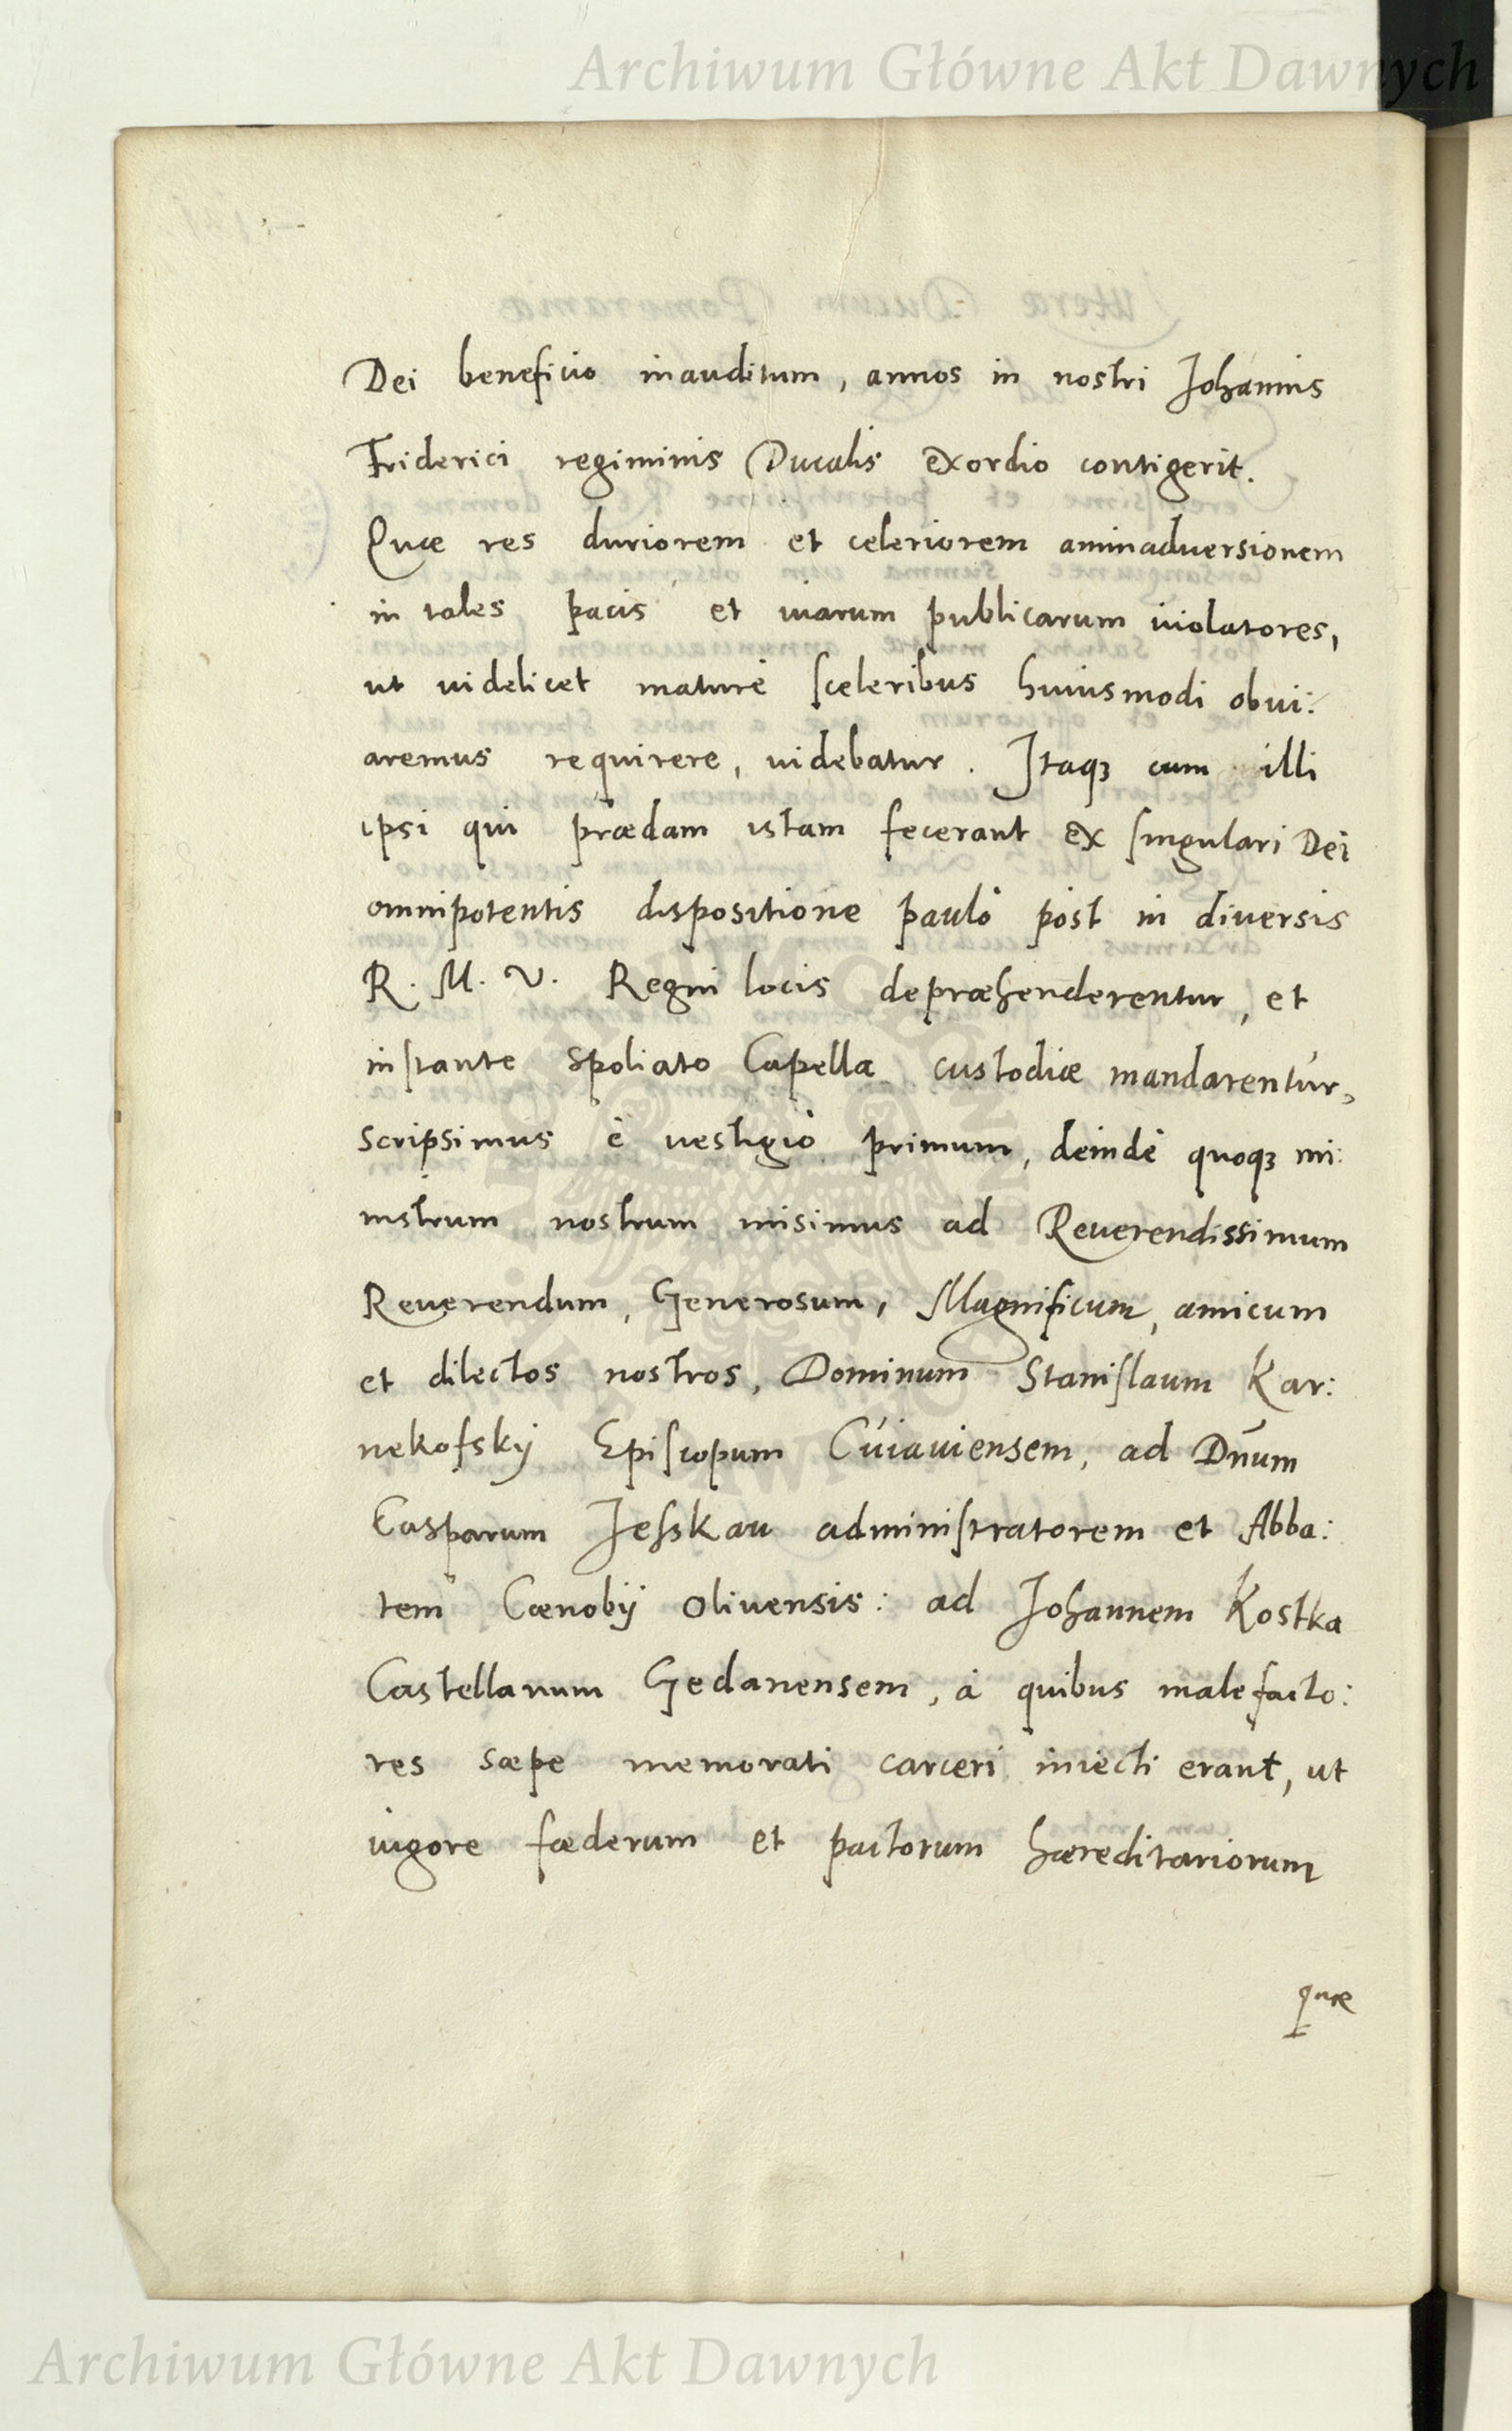 Archiwum Główne Akt Dawnych
Dei beneficio inauditum, annos in nostri Johannis
Friderici regiminis Ducalis exordio contigerit.
Quæ res duriorem et celeriorem animaduersionem
in tales pacis et uiarum publicarum uiolatores,
ut uidelicet maturè sceleribus huiusmodi obui:
aremus requirere, uidebatur. Itaqꝫ cum illi
ipsi qui prædam istam fecerant ex singulari Dei
omnipotentis dispositione paulò pòst in diuersis
R. M. V. Regni locis depræhenderentur, et
instante spoliato Capella custodiæ mandarentur,
scripsimus è uestigiò primum, deindè quoqꝫ mi:
nistrum nostrum misimus ad Reuerendissimum
Reuerendum, Generosum, Magnificum, amicum
et dilectos nostros, Dominum Stanislaum Kar:
nekofskÿ Episcopum Cuiauiensem, ad Dn̄um
Casparum Jesskau administratorem et Abba:
tem Cœnobÿ Oliuensis: ad Johannem Kostka
Castellanum Gedanensem, à quibus malefacto:
res sæpe memorati carceri iniecti erant, ut
uigore fœderum et pactorum hæreditariorum
quæ
Archiwum Główne Akt Dawnych